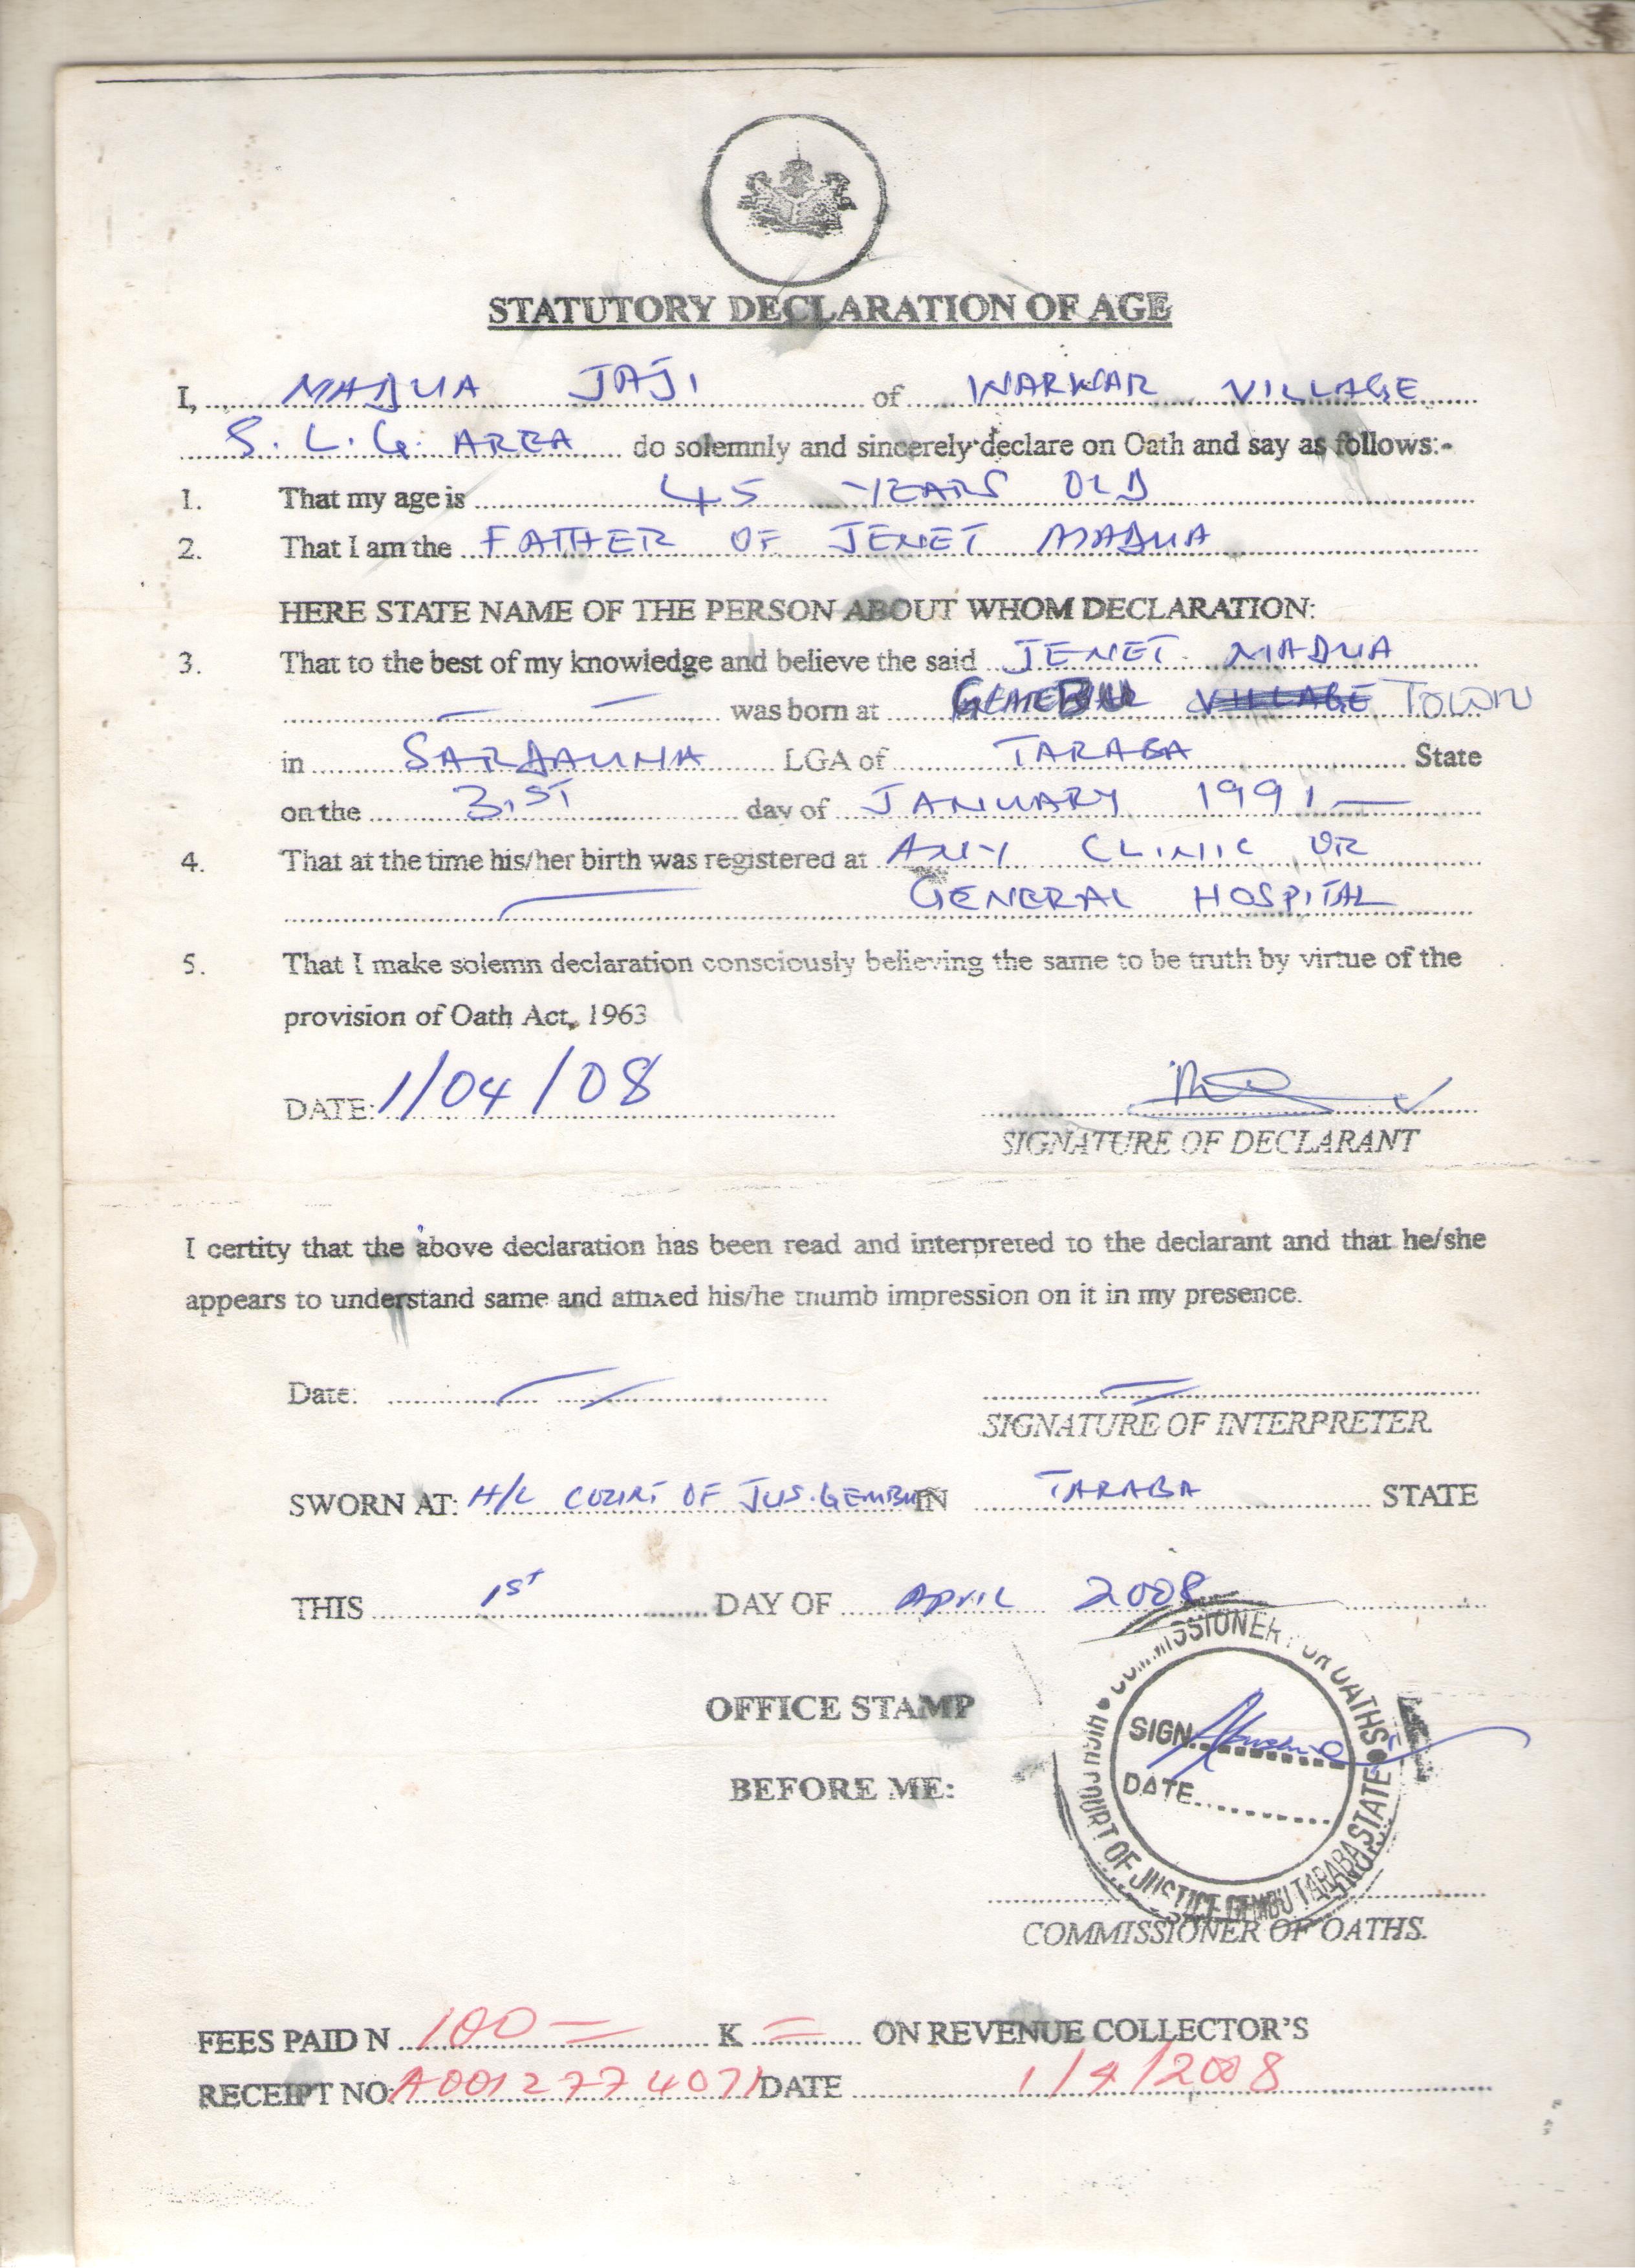 STATUTORY DECLARATION OF AGE
I, MADUA JAJI of WARWAR VILLAGE
S. L. G. AREA do solemnly and sincerely declare on Oath and say as follows:-
1. That my age is 45 YEARS OLD
2. That I am the FATHER OF JENET MADUA
HERE STATE NAME OF THE PERSON ABOUT WHOM DECLARATION:
3. That to the best of my knowledge and believe the said JENET MADUA
was born at GEMBU VILLAGE TOWN
in SARDAUNA LGA of TARABA State
on the 31ST day of JANUARY 1991
4. That at the time his/her birth was registered at ANY CLINIC OR
GENERAL HOSPITAL
5. That I make solemn declaration consciously believing the same to be truth by virtue of the
provision of Oath Act, 1963
DATE: 1/04/08
SIGNATURE OF DECLARANT
I certity that the above declaration has been read and interpreted to the declarant and that he/she
appears to understand same and affixed his/he thumb impression on it in my presence.
Date:
SIGNATURE OF INTERPRETER
SWORN AT: H/C COURT OF JUS. GEMBU IN TARABA STATE
THIS 1ST DAY OF APRIL 2008
OFFICE STAMP
COMMISSIONER FOR OATHS
SIGN
DATE
HIGH COURT OF JUSTICE GEMBU TARABA STATE
BEFORE ME:
COMMISSIONER OF OATHS.
FEES PAID N 100 = K = ON REVENUE COLLECTOR'S
RECEIPT NO: A0012774071 DATE 1/4/2008